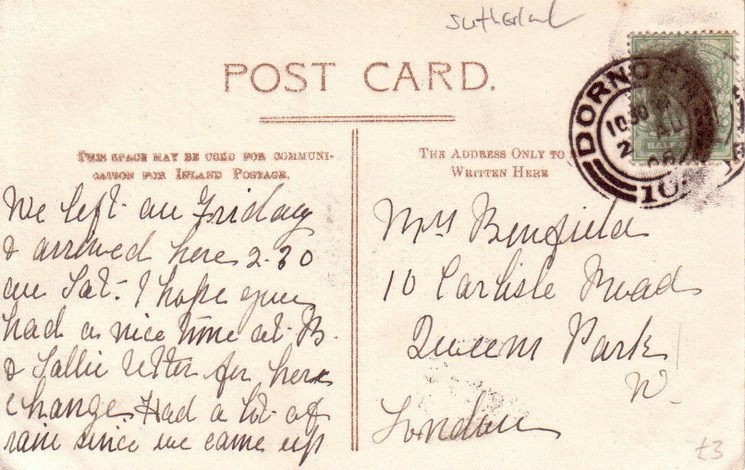 Sutherland
POST CARD.
THIS SPACE MAY BE USED FOR COMMUNI-
CATION FOR INLAND POSTAGE.
THE ADDRESS ONLY TO
WRITTEN HERE
DORNOCH
10 30
AU
2
10
HALF
We left on Friday
& arrived here 2-30
on Sat. I hope you
had a nice time at B.
& Sallie better for her
change. Had a lot of
rain since we came up
Mrs Benfield
10 Carlisle Road
Queens Park
W.
London
£3